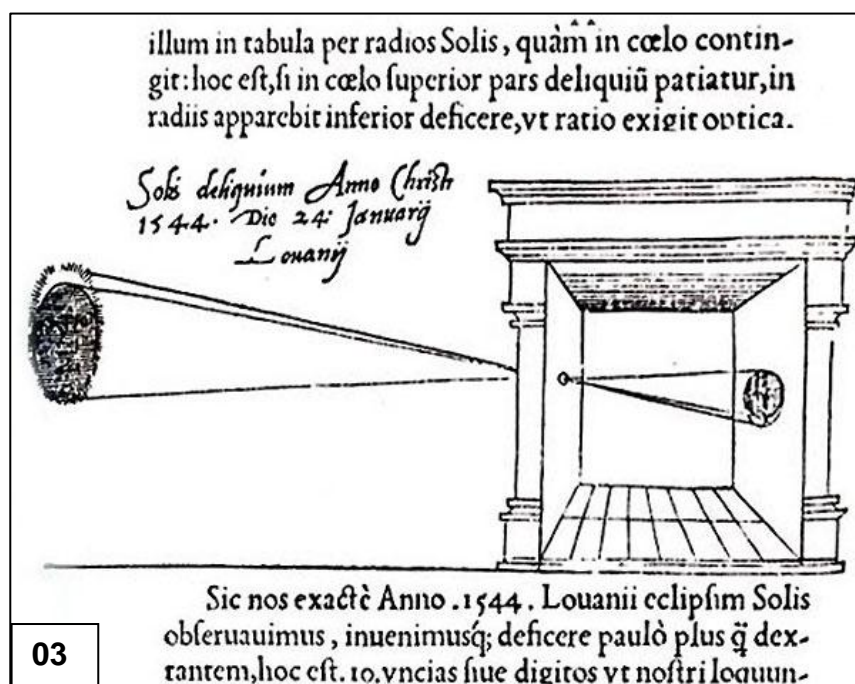 illum in tabula per radios Solis, quàm in cœlo contin-
git: hoc eſt, ſi in cœlo ſuperior pars deliquiũ patiatur, in
radiis apparebit inferior deficere, vt ratio exigit optica.
Solis deliquium Anno Christi
1544. Die 24. Januarij
Louanij
Sic nos exactè Anno .1544. Louanii eclipſim Solis
obſeruauimus, inuenimusq́; deficere paulò plus q̃ dex-
tantem, hoc eſt. 10. vncias ſiue digitos vt noſtri loquun-
03